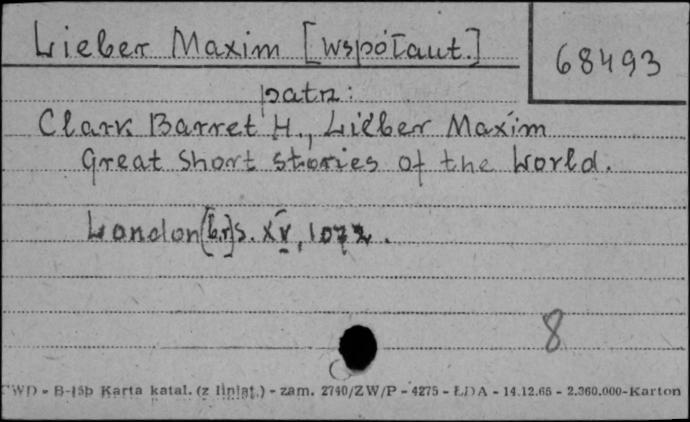 Lieber Maxim [współaut.]
68493
patrz:
Clark Barret H., Lieber Maxim
Great short stories of the World.
London [b.r] s. XV, 1072.
8
CWD - B-15b Karta katal. (z liniat.) - zam. 2740/ZW/P - 4275 - ŁDA - 14.12.65 - 2.360.000-Karton